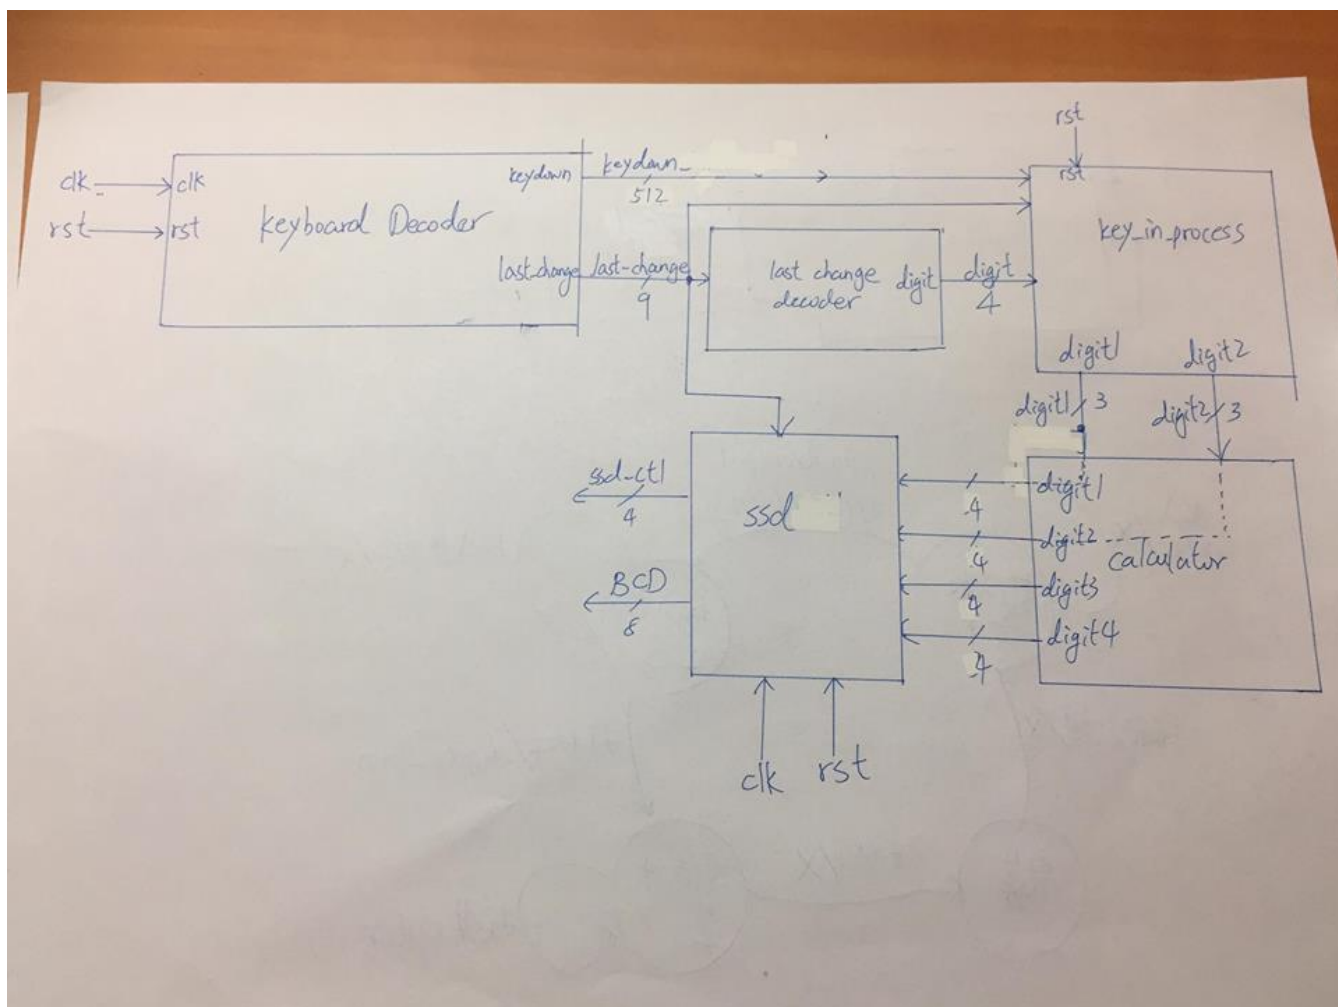 rst
clk
clk
rst
rst
keyboard Decoder
keydown
keydown
512
last_change
last-change
9
last change
decoder
digit
digit
4
rst
key_in_process
digit1
digit2
digit1
3
digit2
3
ssd-ctl
4
BCD
8
ssd
4
4
4
4
digit1
digit2
calculator
digit3
digit4
clk
rst